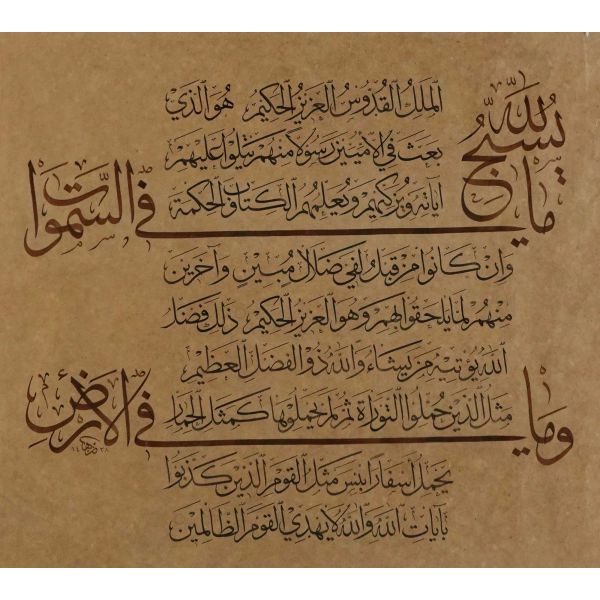 يسبح لله ما في السموات
وما في الأرض
الملك القدوس العزيز الحكيم هو الذي
بعث في الأميين رسولا منهم يتلوا عليهم
آياته ويزكيهم ويعلمهم الكتاب والحكمة
وان كانوا من قبل لفي ضلال مبين وآخرين
منهم لما يلحقوا بهم وهو العزيز الحكيم ذلك فضل
الله يؤتيه من يشاء والله ذو الفضل العظيم
مثل الذين حملوا التوراة ثم لم يحملوها كمثل الحمار
يحمل أسفارا بئس مثل القوم الذين كذبوا
بآيات الله والله لا يهدي القوم الظالمين